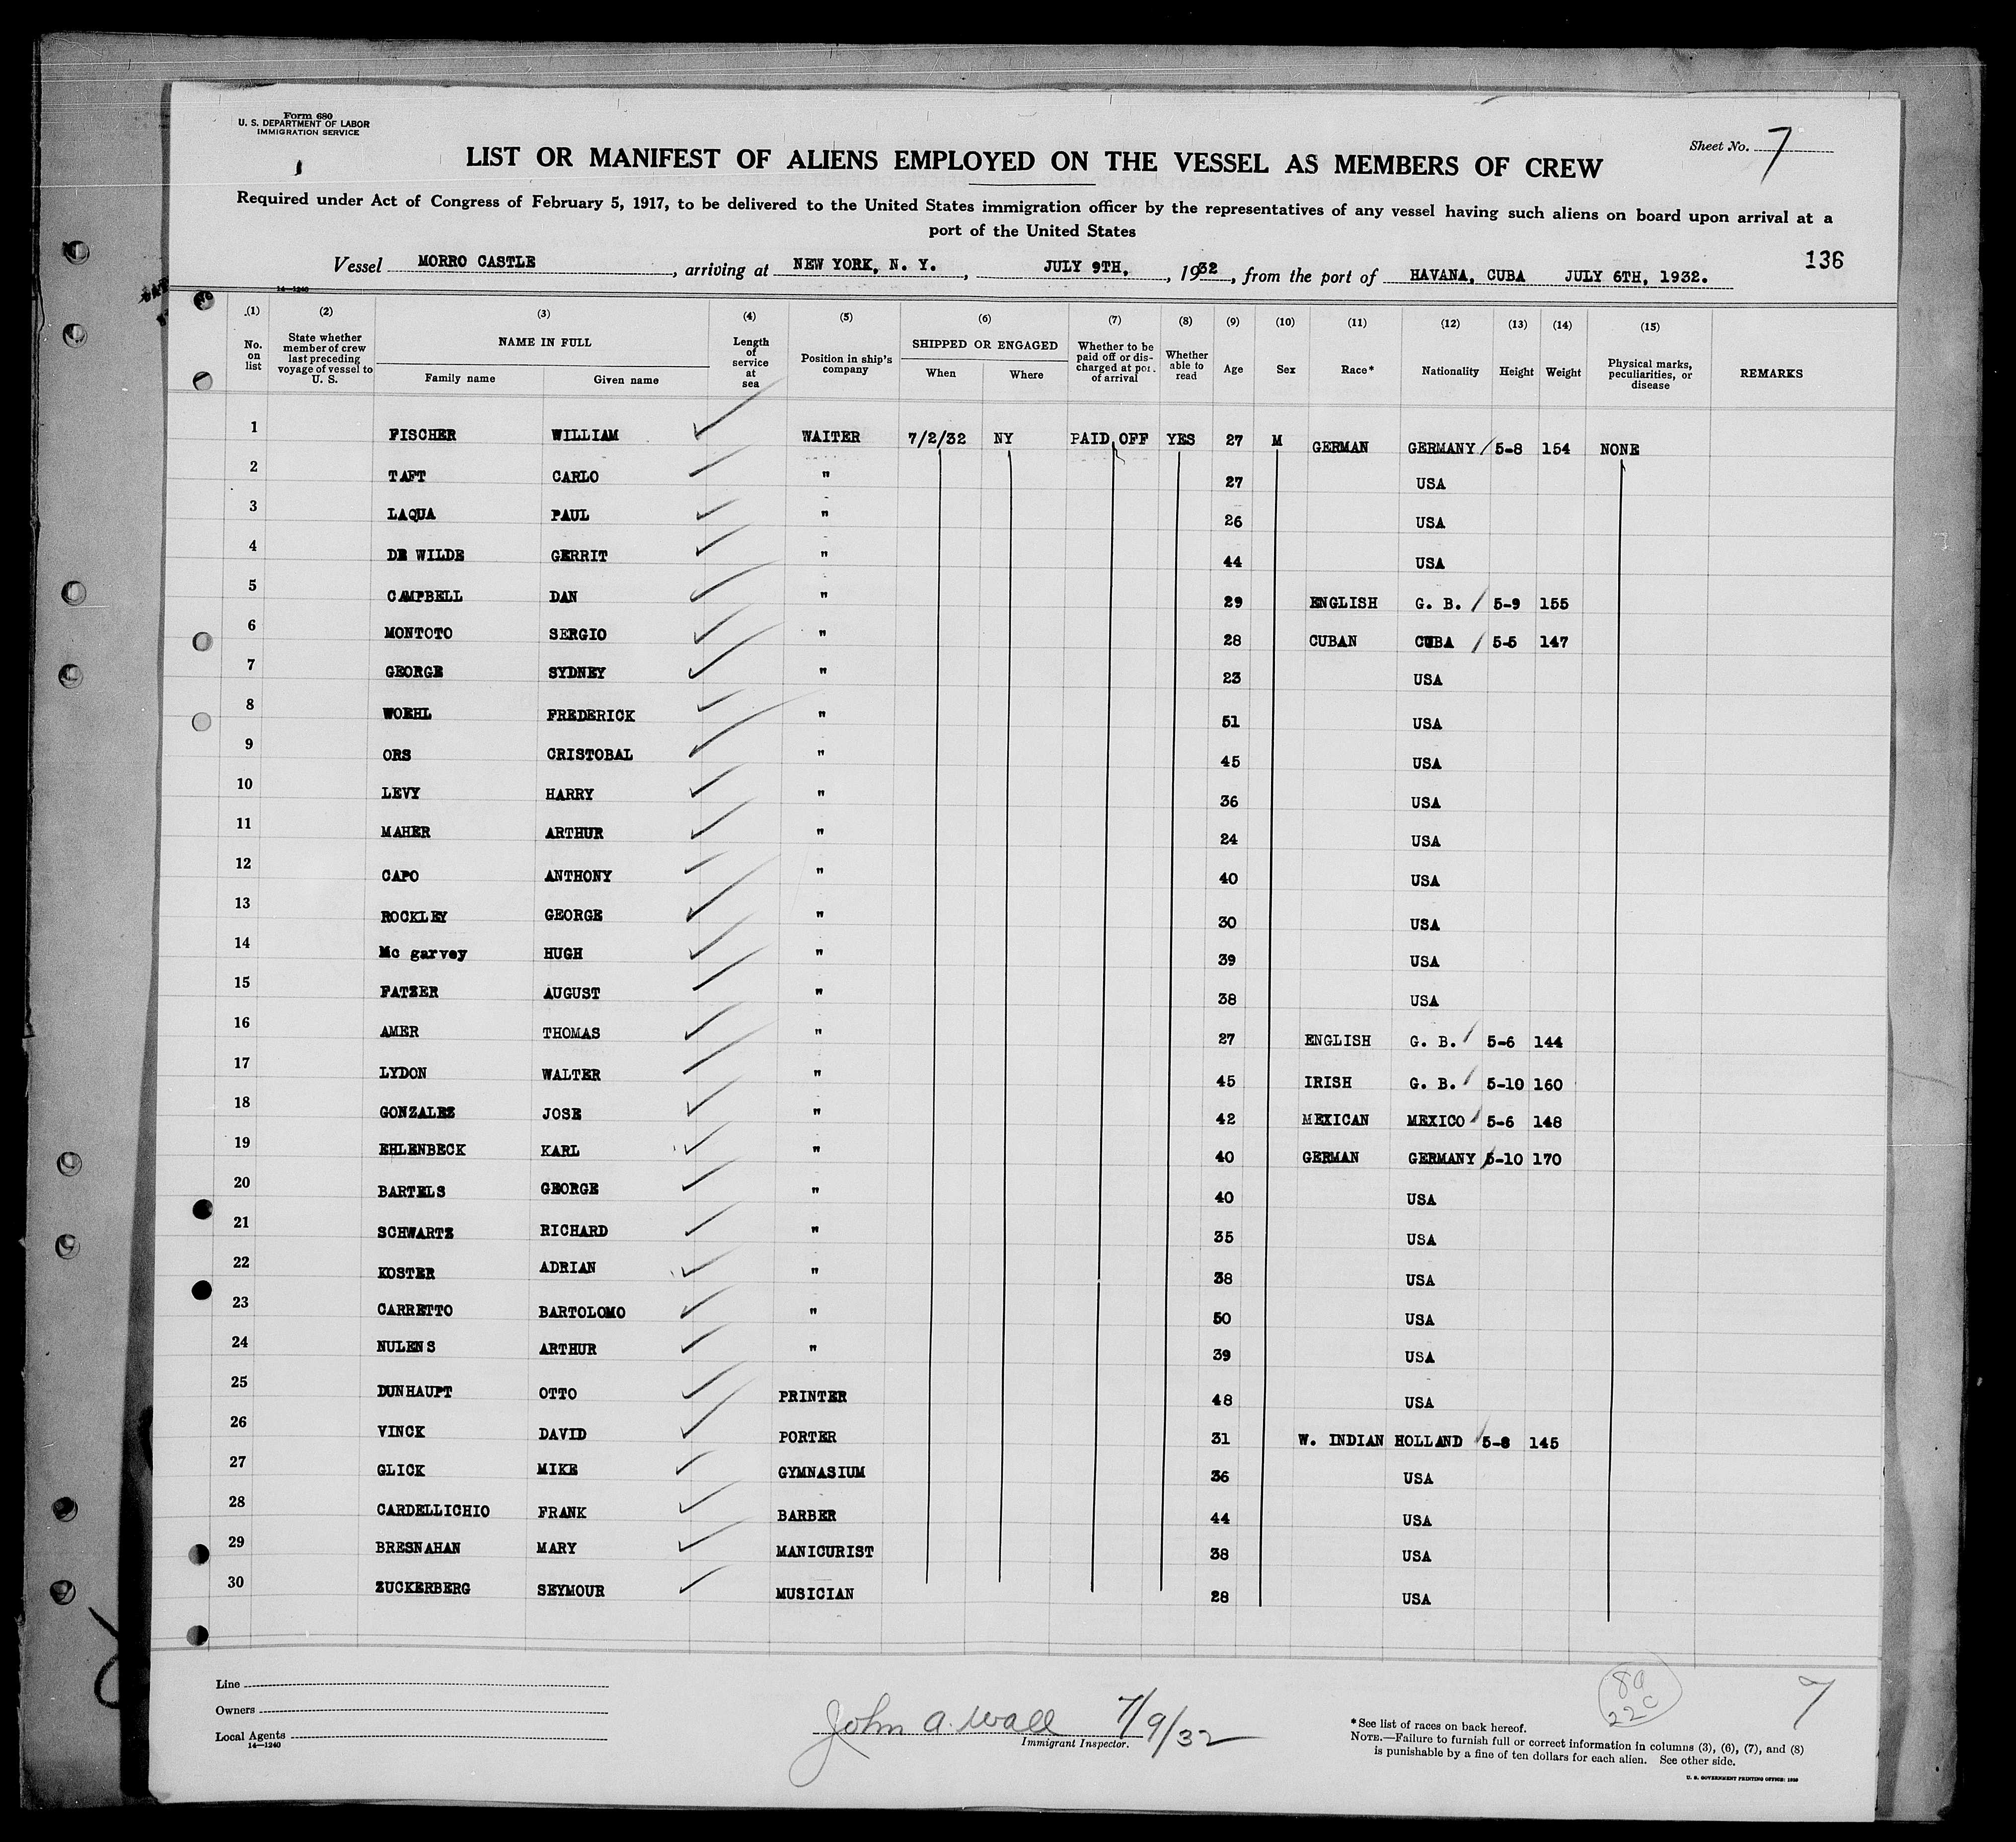 Form 680
U. S. DEPARTMENT OF LABOR
IMMIGRATION SERVICE
Sheet No. 7
LIST OR MANIFEST OF ALIENS EMPLOYED ON THE VESSEL AS MEMBERS OF CREW
Required under Act of Congress of February 5, 1917, to be delivered to the United States immigration officer by the representatives of any vessel having such aliens on board upon arrival at a
port of the United States
136
Vessel MORRO CASTLE, arriving at NEW YORK, N. Y., JULY 9TH, 1932, from the port of HAVANA, CUBA JULY 6TH, 1932.
14—1240
(1) (2) (3) (4) (5) (6) (7) (8) (9) (10) (11) (12) (13) (14) (15)
No. on list State whether member of crew last preceding voyage of vessel to U. S. NAME IN FULL Family name Given name Length of service at sea Position in ship's company SHIPPED OR ENGAGED When Where Whether to be paid off or discharged at port of arrival Whether able to read Age Sex Race* Nationality Height Weight Physical marks, peculiarities, or disease REMARKS
1 FISCHER WILLIAM WAITER 7/2/32 NY PAID OFF YES 27 M GERMAN GERMANY 5-8 154 NONE
2 TAFT CARLO " 27 USA
3 LAQUA PAUL " 26 USA
4 DE WILDE GERRIT " 44 USA
5 CAMPBELL DAN " 29 ENGLISH G. B. 5-9 155
6 MONTOTO SERGIO " 28 CUBAN CUBA 5-5 147
7 GEORGE SYDNEY " 23 USA
8 WOEHL FREDERICK " 51 USA
9 ORS CRISTOBAL " 45 USA
10 LEVY HARRY " 36 USA
11 MAHER ARTHUR " 24 USA
12 CAPO ANTHONY " 40 USA
13 ROCKLEY GEORGE " 30 USA
14 Mc garvey HUGH " 39 USA
15 FATZER AUGUST " 38 USA
16 AMER THOMAS " 27 ENGLISH G. B. 5-6 144
17 LYDON WALTER " 45 IRISH G. B. 5-10 160
18 GONZALEZ JOSE " 42 MEXICAN MEXICO 5-6 148
19 EHLENBECK KARL " 40 GERMAN GERMANY 5-10 170
20 BARTELS GEORGE " 40 USA
21 SCHWARTZ RICHARD " 35 USA
22 KOSTER ADRIAN " 38 USA
23 CARRETTO BARTOLOMO " 50 USA
24 NULENS ARTHUR " 39 USA
25 DUNHAUPT OTTO PRINTER 48 USA
26 VINCK DAVID PORTER 31 W. INDIAN HOLLAND 5-8 145
27 GLICK MIKE GYMNASIUM 36 USA
28 CARDELLICHIO FRANK BARBER 44 USA
29 BRESNAHAN MARY MANICURIST 38 USA
30 ZUCKERBERG SEYMOUR MUSICIAN 28 USA
Line
Owners
Local Agents
14—1240
John A. Wall 7/9/32
Immigrant Inspector.
8a
22c
7
*See list of races on back hereof.
NOTE.—Failure to furnish full or correct information in columns (3), (6), (7), and (8)
is punishable by a fine of ten dollars for each alien. See other side.
U. S. GOVERNMENT PRINTING OFFICE: 1930